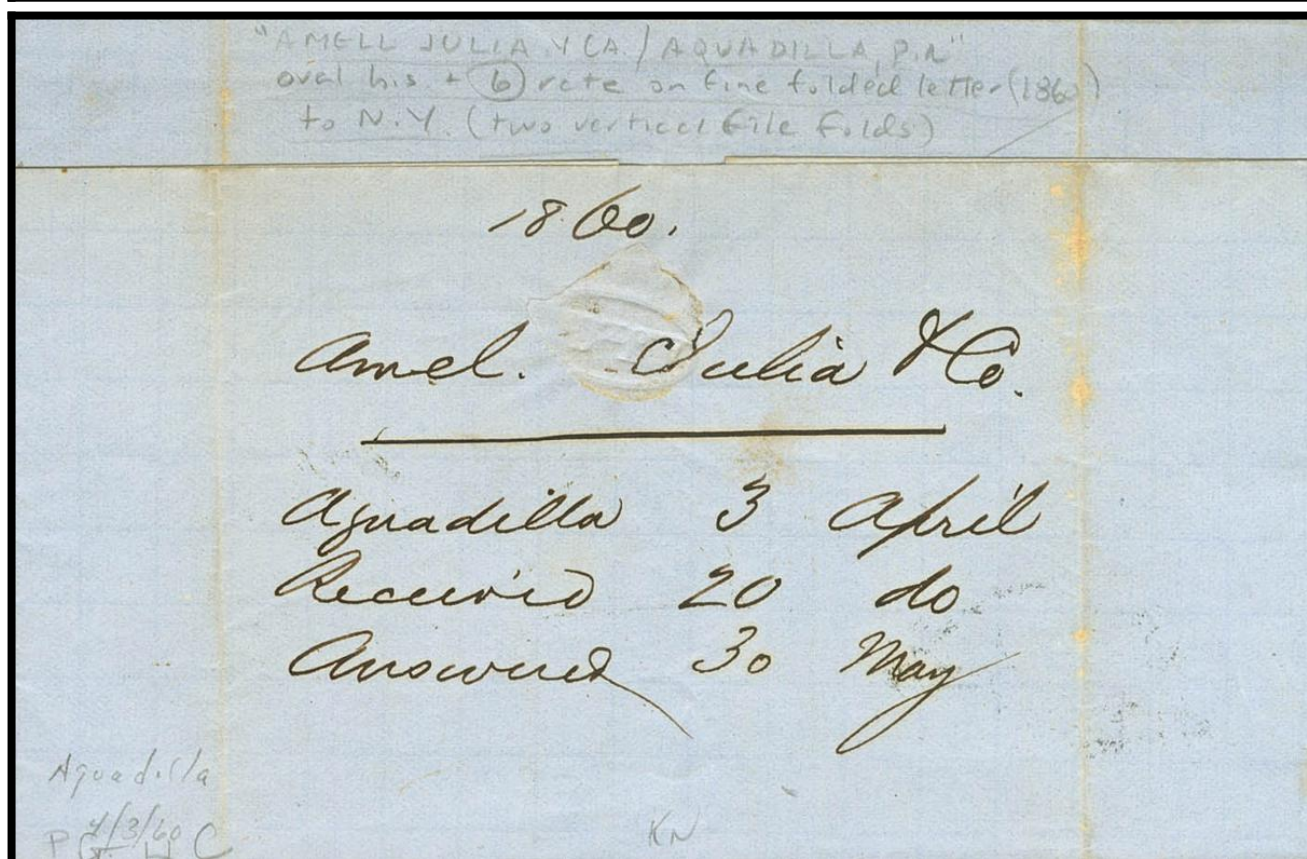 "AMELL JULIA Y CA. / AQUADILLA, P.R."
oval h.s. + (6) rate on fine folded letter (1860)
to N.Y. (two vertical file folds)
1860.
Amel. Julia & Co.
Aguadilla 3 April
Received 20 do
Answered 30 May
Aguadilla
4/3/60
KN